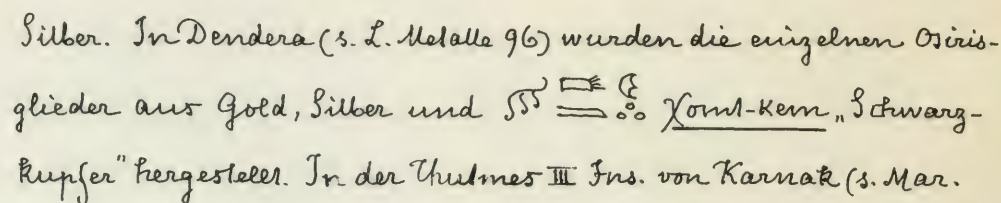 Silber. In Dendera (s. L. Metalle 96) wurden die einzelnen Osiris-
glieder aus Gold, Silber und Xomt-kem „Schwarz-
kupfer" hergestellt. In der Thutmes III Ins. von Karnak (s. Mar.